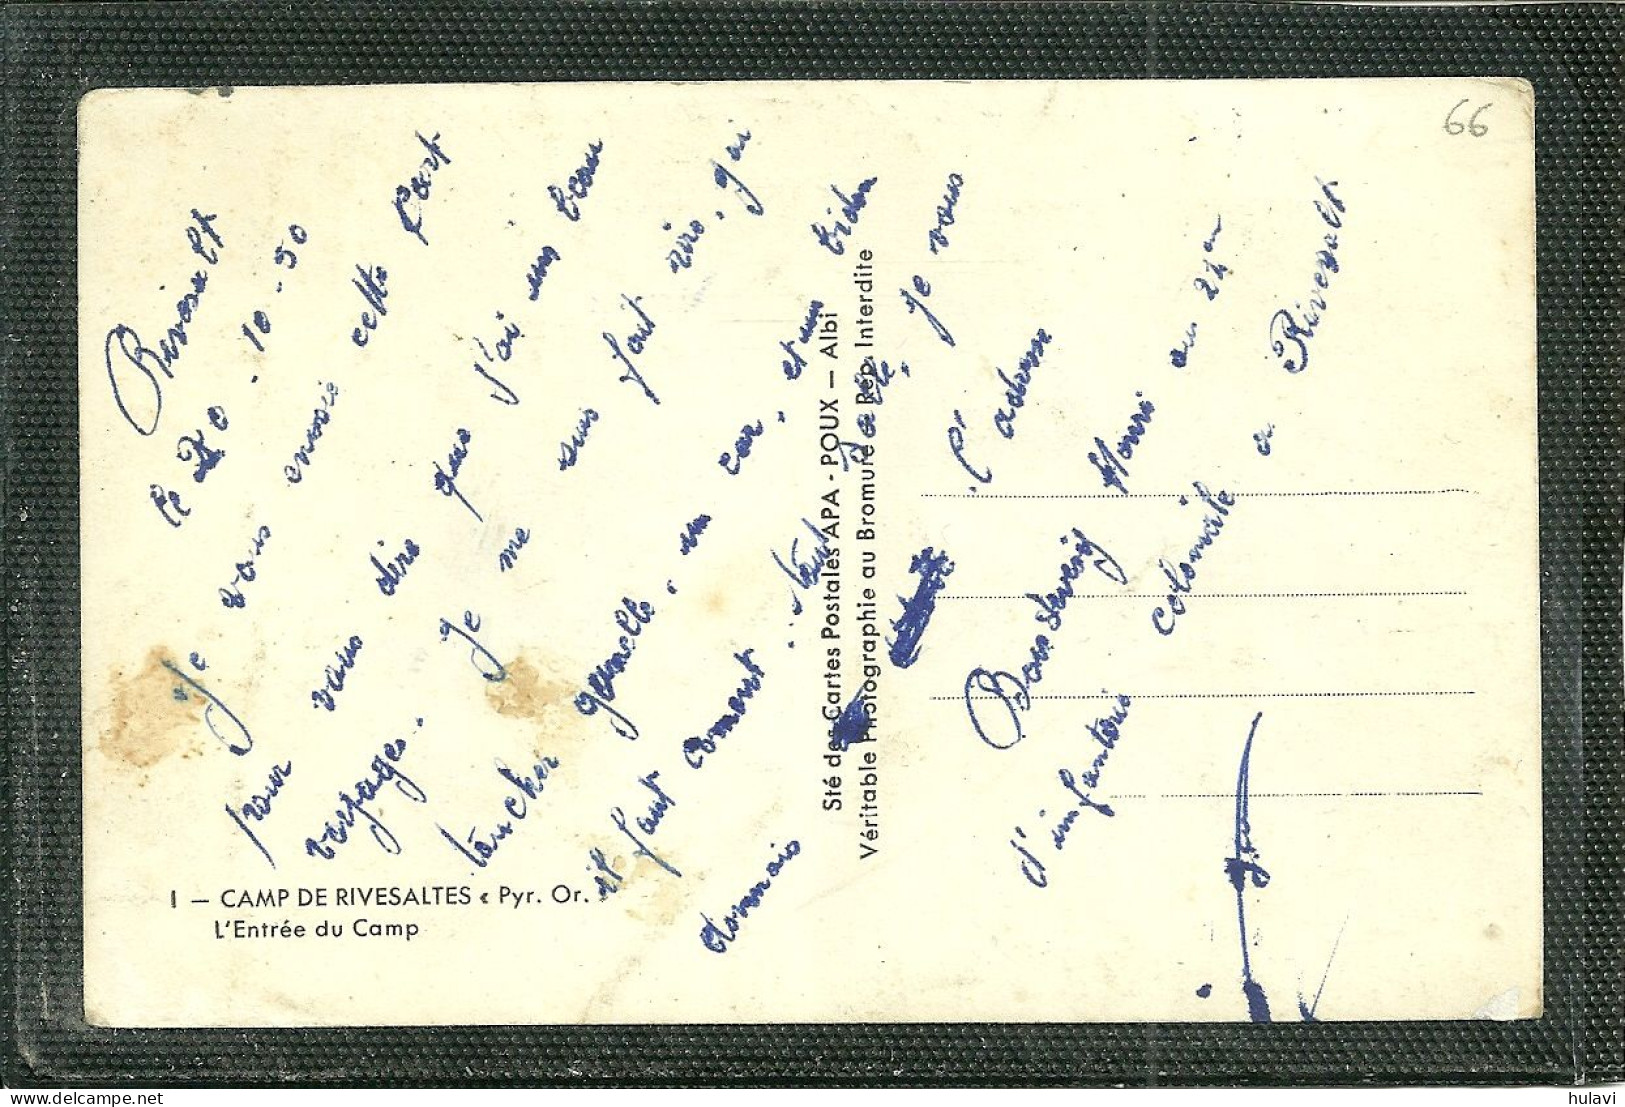 Rivesalt
le 20.10-50
Je vous envoie cette cart
pour vous dire que j'ai un beau
voyages. Je me suis fait vire. j'ai
toucher gamelle, un car, et un bidon
il faut coment. tout sale, je vous
donnais l'adress
Henri au 24
d'infanterie colonialle a Rivesalt
66
1 — CAMP DE RIVESALTES « Pyr. Or.
L'Entrée du Camp
Sté des Cartes Postales APA - POUX — Albi
Véritable Photographie au Bromure Rép. Interdite
hulavi